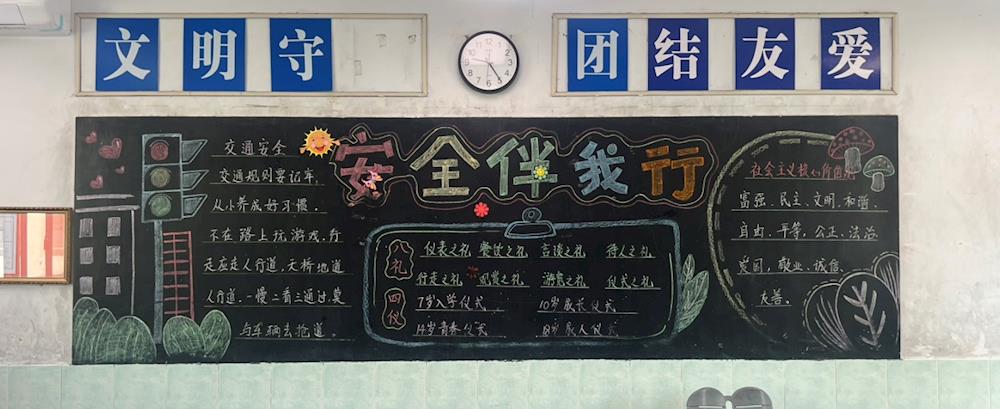 文明守
团结友爱
安全伴我行
交通安全
交通规则要记牢,
从小养成好习惯.
不在路上玩游戏,行
走应走人行道,天桥地道
人行道.一慢二看三通过,莫
与车辆去抢道.
八礼
仪表之礼 餐饮之礼 言谈之礼 待人之礼
行走之礼 观赏之礼 游览之礼 仪式之礼
四仪
7岁入学仪式 10岁成长仪式
14岁青春仪式 18岁成人仪式
社会主义核心价值观
富强、民主、文明、和谐、
自由、平等、公正、法治
爱国,敬业、诚信、
友善。